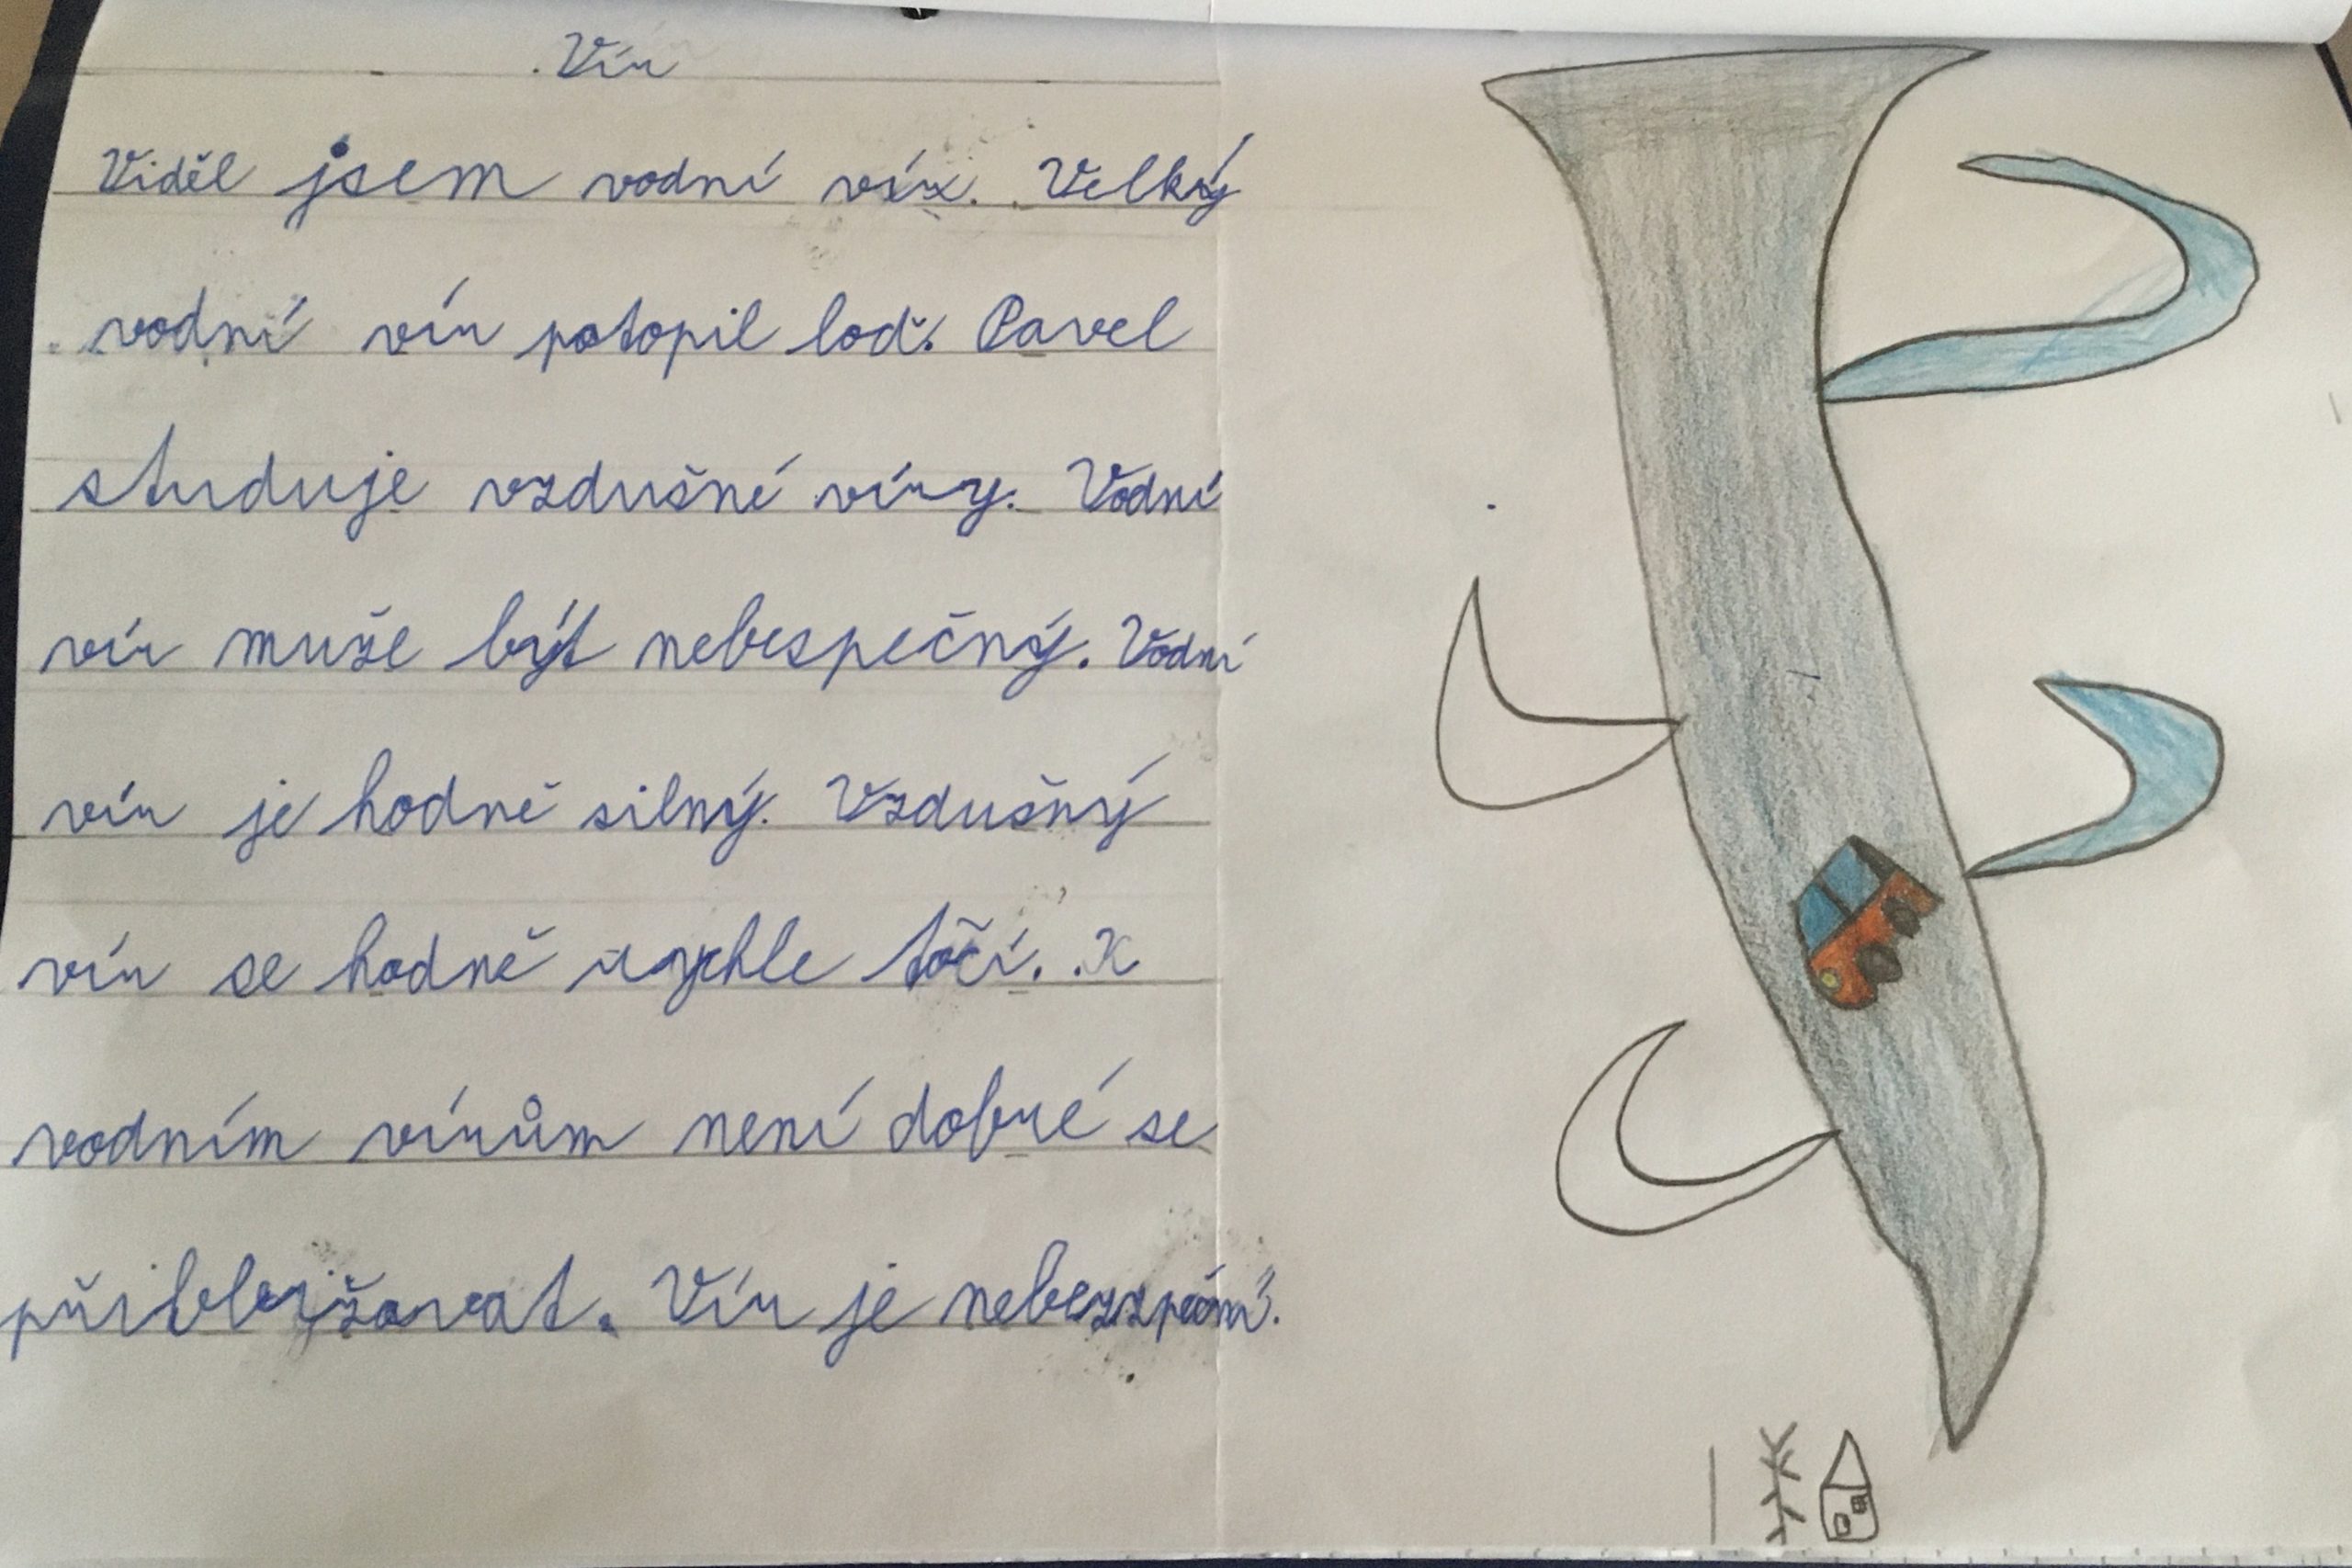 Vír
Viděl jsem vodní vír. Velký
vodní vír potopil loď. Pavel
studuje vzdušné víry. Vodní
vír muže být nebespečný. Vodní
vír je hodně silný. Vzdušný
vír se hodně rychle točí. K
vodním vírům není dobré se
přibližovat. Vír je